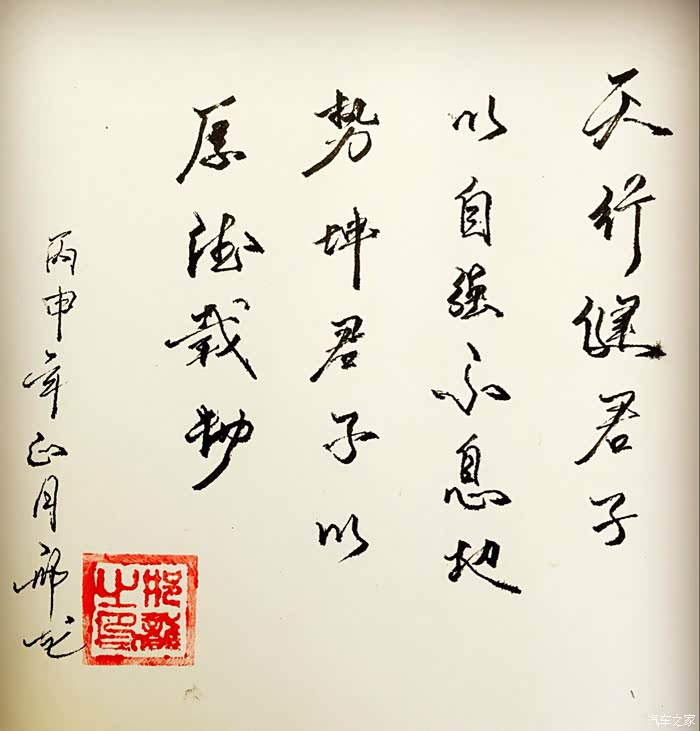 天行健君子
以自强不息地
势坤君子以
厚德载物
丙申年正月邢
之印
汽车之家